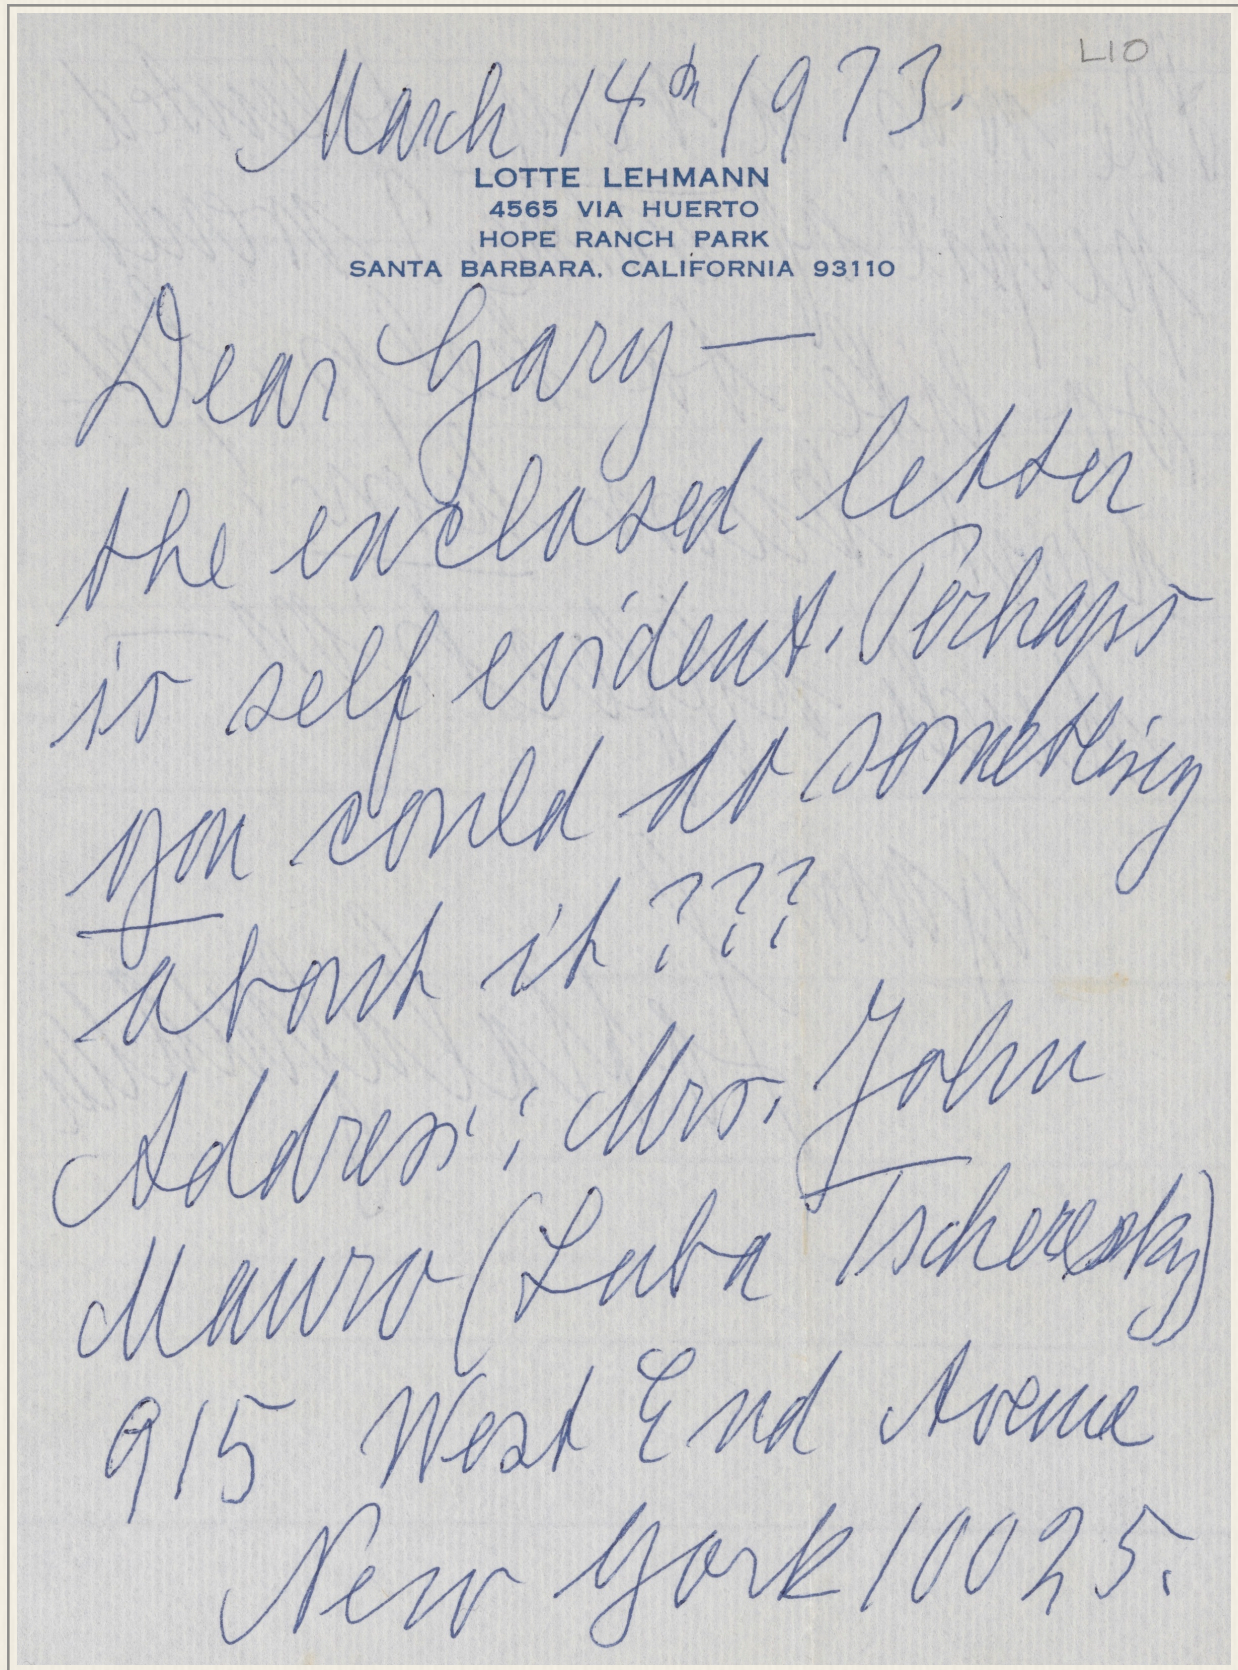 L10
March 14th 1973.
LOTTE LEHMANN
4565 VIA HUERTO
HOPE RANCH PARK
SANTA BARBARA, CALIFORNIA 93110
Dear Gary —
the enclosed letter
is self evident. Perhaps
you could do something
about it???
Address: Mrs. John
Mauro (Luba Tcheresky)
915 West End Avenue
New York 10025.